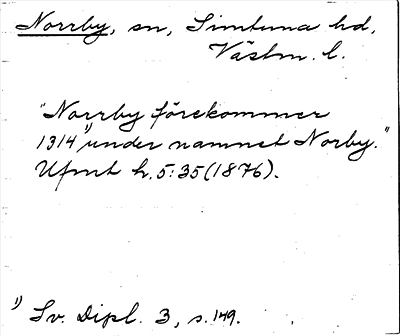 Norrby, sn, Simtuna hd,
Västm. l.
"Norrby förekommer
1314¹⁾ under namnet Norby."
Ufmt h. 5:35 (1876).
¹⁾ Sv. Dipl. 3, s. 149.